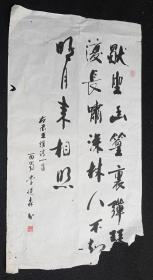 獨坐幽篁裏彈琴
復長嘯深林人不知
明月来相照
王維詩一首